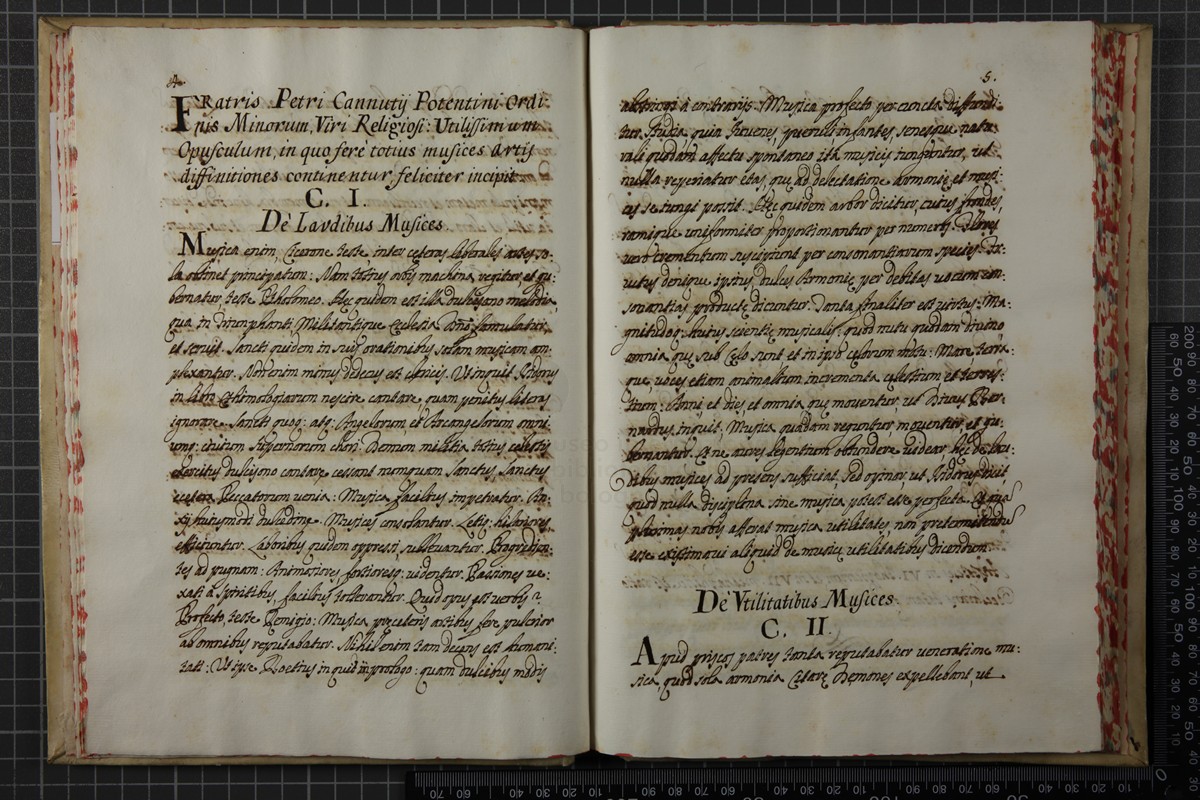 4.
FRatris Petri Cannutij Potentini Ordi-
nis Minorum, Viri Religiosi: Utilissimum
Opusculum, in quo ferè totius musices artis
diffinitiones continentur, feliciter incipit
C. I.
Dè Laudibus Musices
Musica enim, Cicerone teste inter ceteras liberales artes, so-
la obtinet principatum: Nam totius orbis machina regitur, et gu-
bernatur, teste Ptholomeo. Hęc quidem est illa dulcisono melodia,
qua in triumphanti, Militantique Ecclesia Dño famulatur,
et seruit. Sancti quidem in suis orationibus solam musicam am-
plexantur. Non enim minus dedecus est clericis, Ut inquit Isidorus
in libro Ethimologiarum nescire cantare, quam penitus literas
ignorare. Sancti quoq: atq: Angelorum et Arcangelorum omni-
umq: ciuium supernorum chori: Demum militia totius celestis
exercitus dulcisono cantare cessant nunquam Sanctus, Sanctus
Peccatorum uenia: Musica facilius impetratur.
huiusmodi dulcedine. Musicis consolantur. Letis: hilariores
efficiuntur. Laboribus quidem oppressi subleuantur. Progredien-
tes ad pugnam: Animosiores, fortioresq: uidentur. Passiones ue-
xati a spiritibus, facilius tolleruantur. Quid opus est uerbis?
Profecto, teste Remigio: Musica pręceteris artibus fere pulcrior
ab omnibus reputabatur. Nihil enim tam decens est humani-
tati: Ut ipse Boetius inquid in prologo: quam dulcibus modis
5.
astringi a contrarijs. Musica profecto per cuncta diffundi-
tur studia, quia Iuuenes, queruli infantes, senesque natu-
rali quodam affectu spontaneo ita musicis iunguntur, ut
nulla reperiatur etas, quę ad delectatione Armonię, et musi-
cis se iungi possit. Hęc quidem arbor dicitur, cuius frondes,
ramique uniformiter proportionantur per numeros. Flores
uero crementum suscipiunt per consonantiarum species.
denique ipsius, dulces Armonię per debitas uocum con-
sonantias productę dicuntur. Tanta finaliter est uirtus: Ma-
gnitudoq: huius scientię musicalis: quod nutu quodam diuino
omnia quę sub Celo sunt et in ipso celorum motu: Mare terra-
que, uoces etiam animalium incrementa celestium et terres-
trium: Anni et dies et omnia quę mouentur, ut Diuus Ber-
nardus inquit, Musica quadam reguntur, mouentur, et gu-
bernantur. Et ne aures legentium obtundere uidear hęc de lau-
dibus musices ad presens sufficiat, sed opinor, ut Isidorus dicit,
quod nulla disciplina sine musica potest esse perfecta.
plurimas nobis afferat musica utilitates, non pretermittendū
esse existimaui aliquid de musicę utilitatibus dicendum.
Dè Vtilitatibus Musices
C. II.
Apud priscos patres tanta reputabatur ueratione mu-
sica, quod sola armonia Citarę Demones expellebant, ut